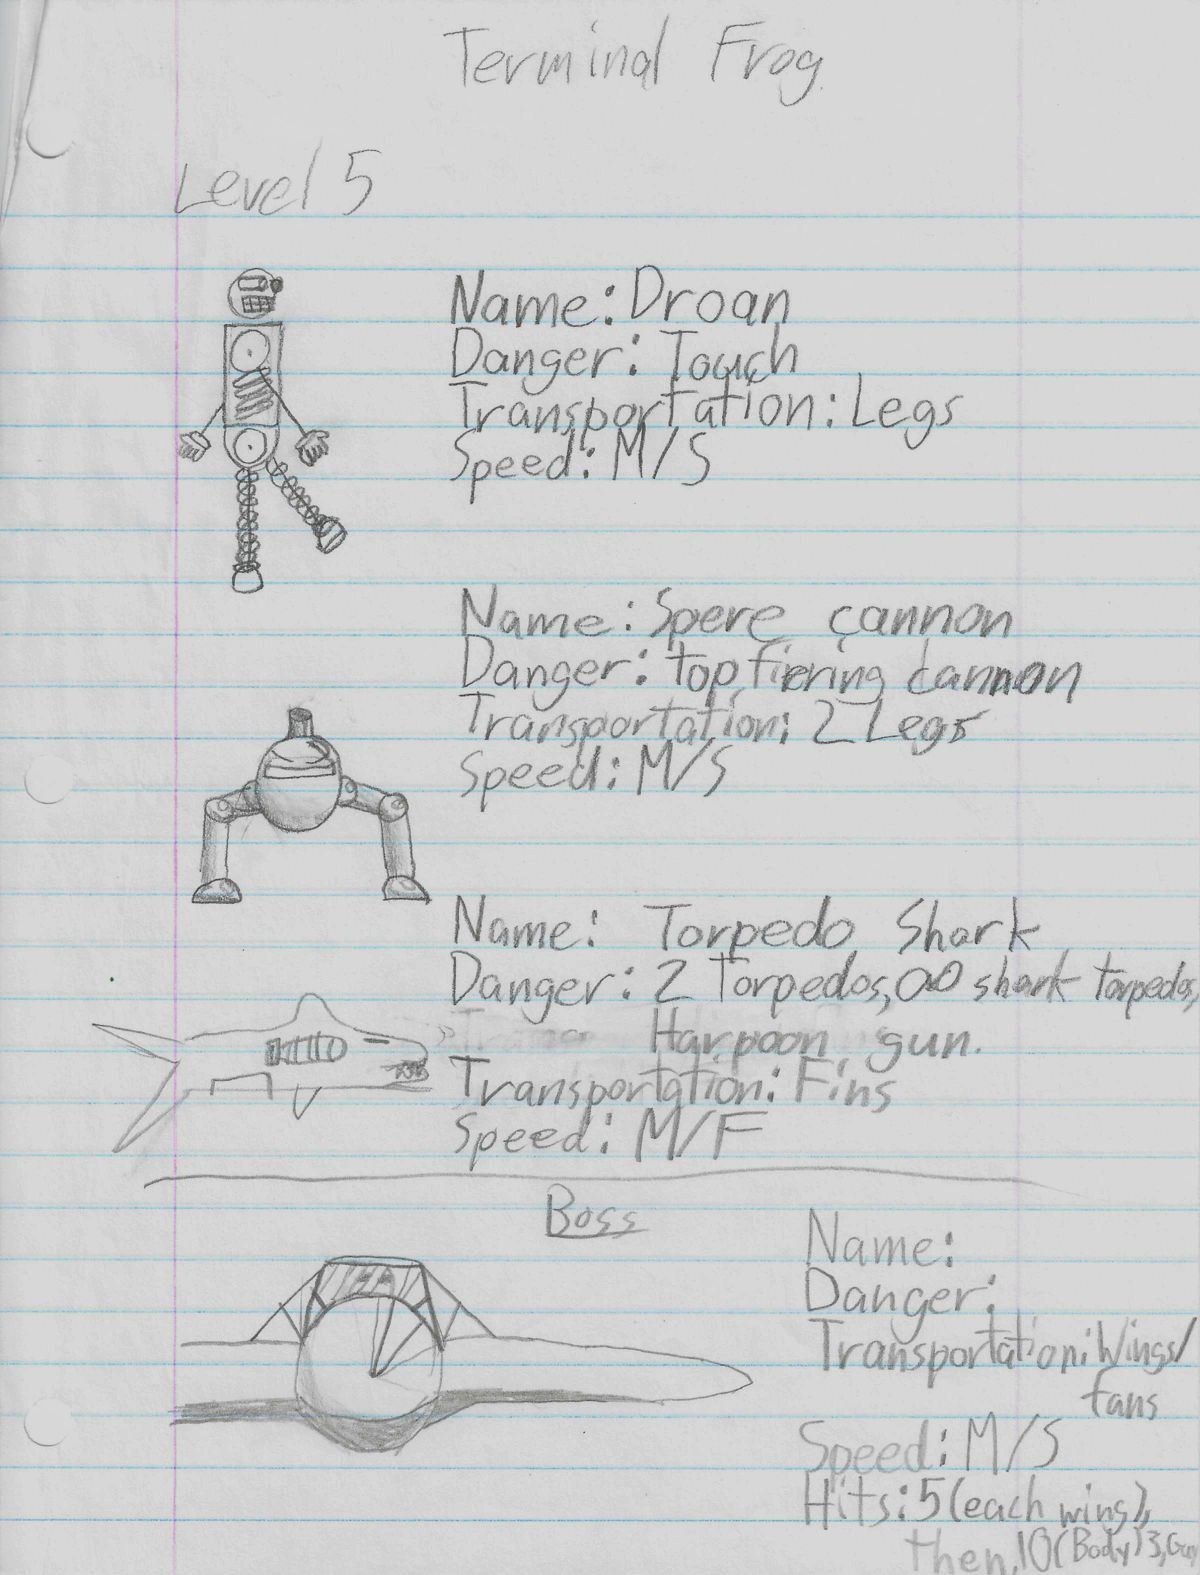 Terminal Frog
Level 5
Name: Droan
Danger: Touch
Transportation: Legs
Speed: M/S
Name: Spere cannon
Danger: top, fiering cannon
Transportation: 2 Legs
Speed: M/S
Name: Torpedo Shark
Danger: 2 Torpedos, ∞ shark torpedos,
Harpoon gun.
Transportation: Fins
Speed: M/F
Boss
Name:
Danger:
Transportation: Wings/
fans
Speed: M/S
Hits: 5 (each wing),
then, 10 (Body) 3,